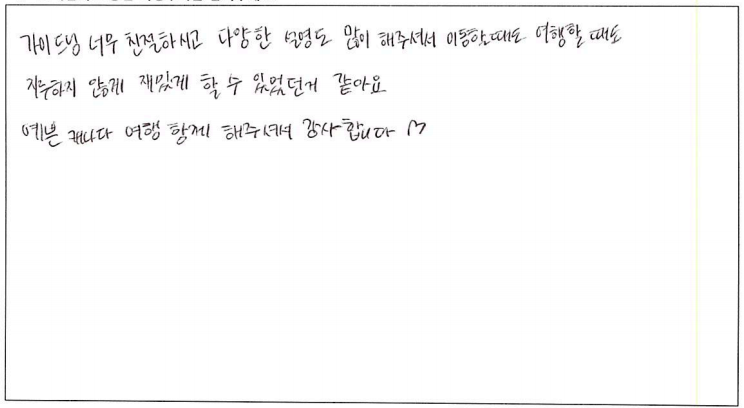 가이드님 너무 친절하시고 다양한 설명도 많이 해주셔서 이동할때도 여행할 때도
지루하지 않게 재밌게 할 수 있었던거 같아요
예쁜 캐나다 여행 함께 해주셔서 감사합니다 ♡